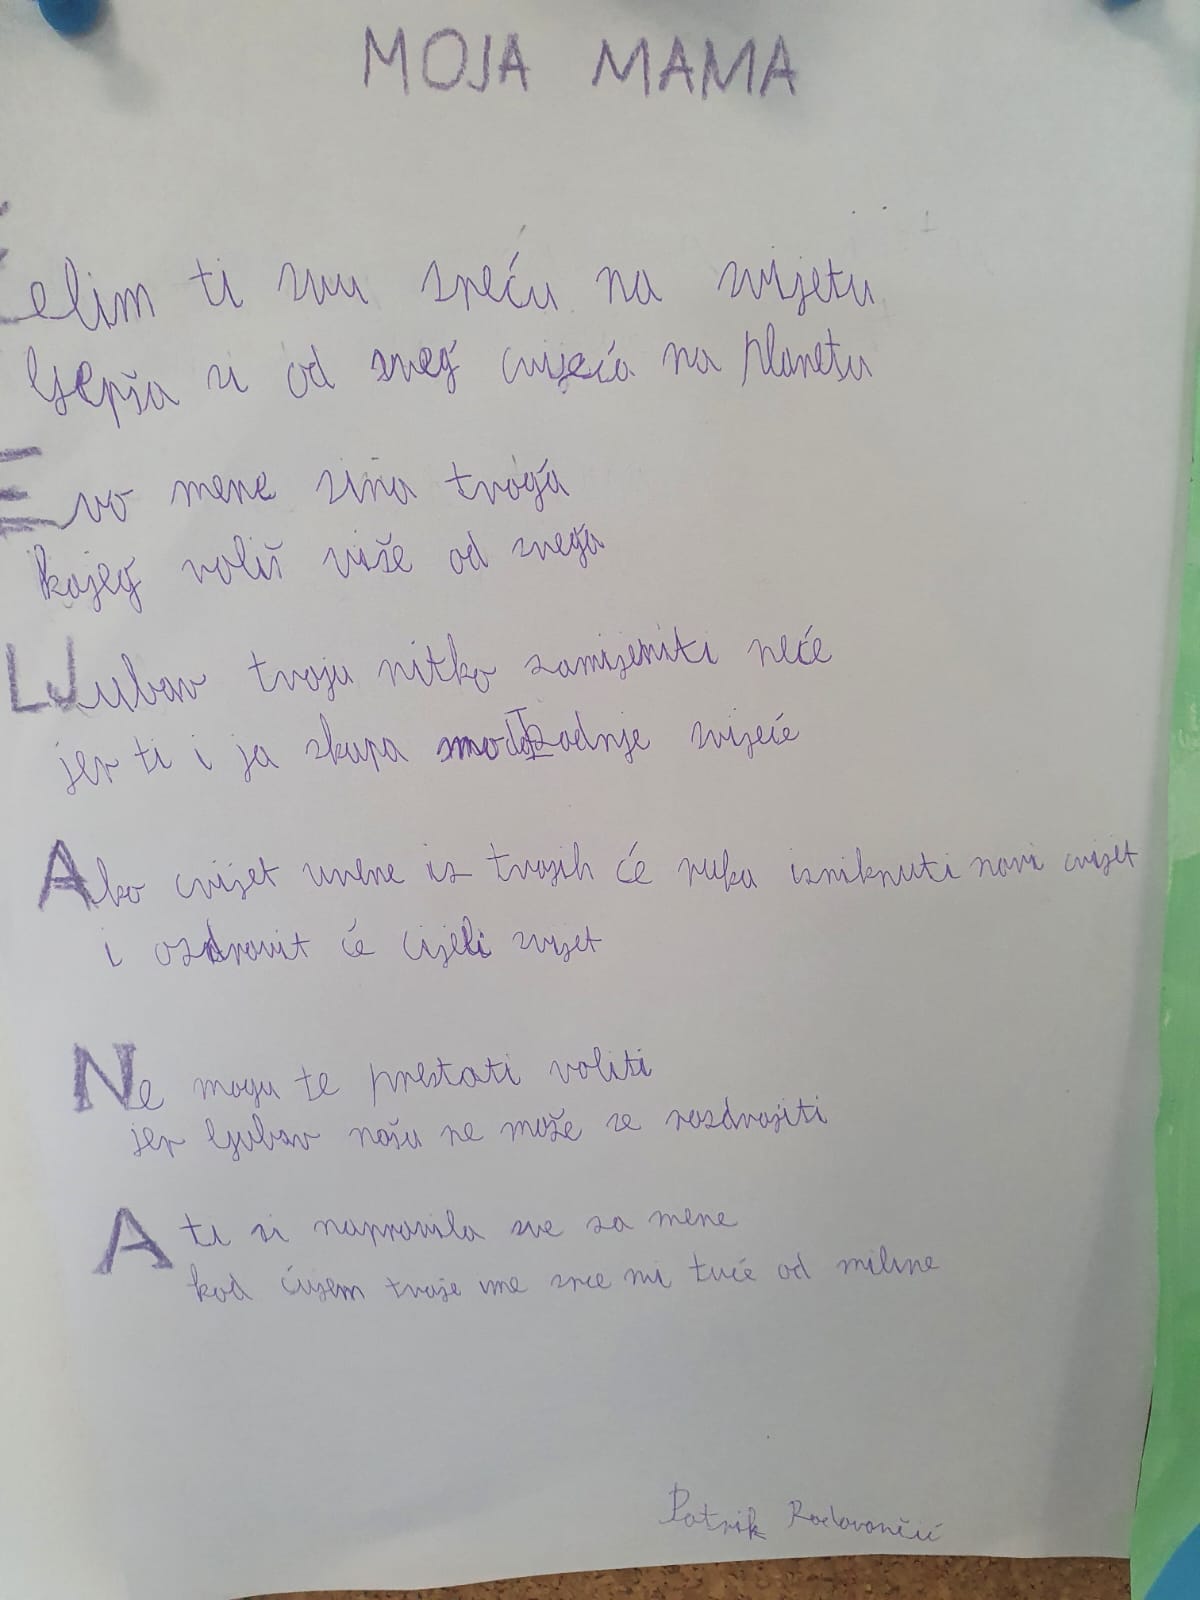 MOJA MAMA
Želim ti svu sreću na svijetu
ljepša si od sveg cvijeća na planetu
Evo mene sina tvoga
kojeg voliš više od svega
LJubav tvoju nitko zamijeniti neće
jer ti i ja skupa smo do zadnje svijeće
Ako cvijet uvene iz tvojih će ruku izniknuti novi cvijet
i ozdravit će cijeli svijet
Ne mogu te prestati voliti
jer ljubav našu ne može se razdvojiti
A ti si napravila sve za mene
kad čujem tvoje ime srce mi tuće od miline
Patrik Radovančić